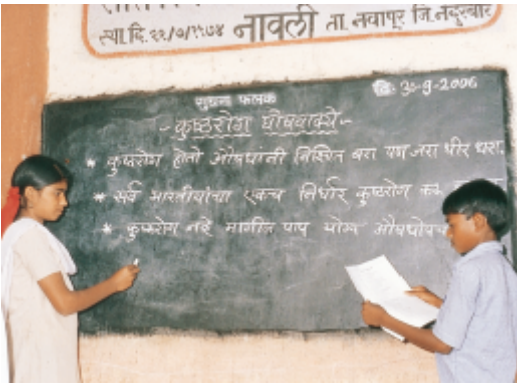 स्था.दि. २२/७/१९७४ नावली ता. नवापूर जि. नंदूरबार
सुचना फलक
दि. 30-9-2006
-कुष्ठरोग घोषवाक्ये-
* कुष्ठरोग होतो औषधांनी निश्चित बरा पण जरा धीर धरा.
* सर्व भारतीयांचा एकच निर्धार कुष्ठरोग करू
* कुष्ठरोग नव्हे मागील पाप योग्य औषधोपचा